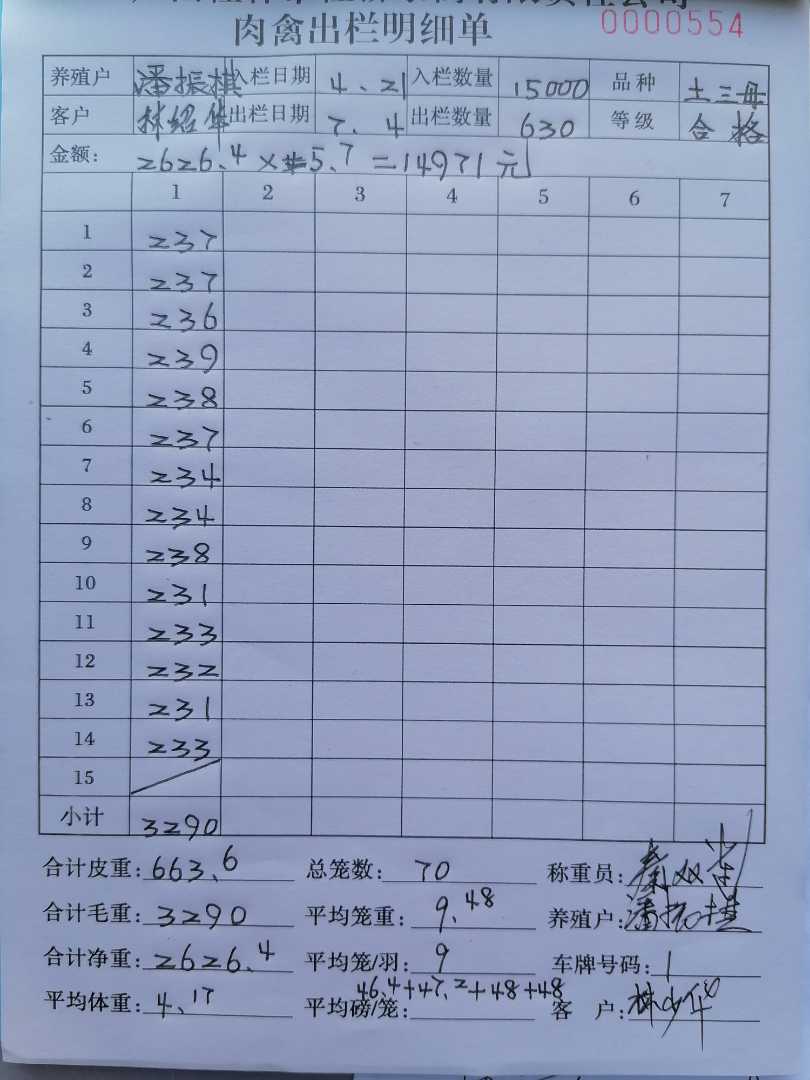 肉禽出栏明细单 0000554
养殖户 潘振棋 入栏日期 4.21 入栏数量 15000 品种 土三母
客户 林绍华 出栏日期 7.4 出栏数量 630 等级 合格
金额: 2626.4×5.7=14971元
1 2 3 4 5 6 7
1 237
2 237
3 236
4 239
5 238
6 237
7 234
8 234
9 238
10 231
11 233
12 232
13 231
14 233
15
小计 3290
合计皮重: 663.6 总笼数: 70 称重员:
合计毛重: 3290 平均笼重: 9.48 养殖户: 潘振棋
合计净重: 2626.4 平均笼/羽: 9 车牌号码: 1
平均体重: 4.17 平均磅/笼: 46.4+47.2+48+48 客 户: